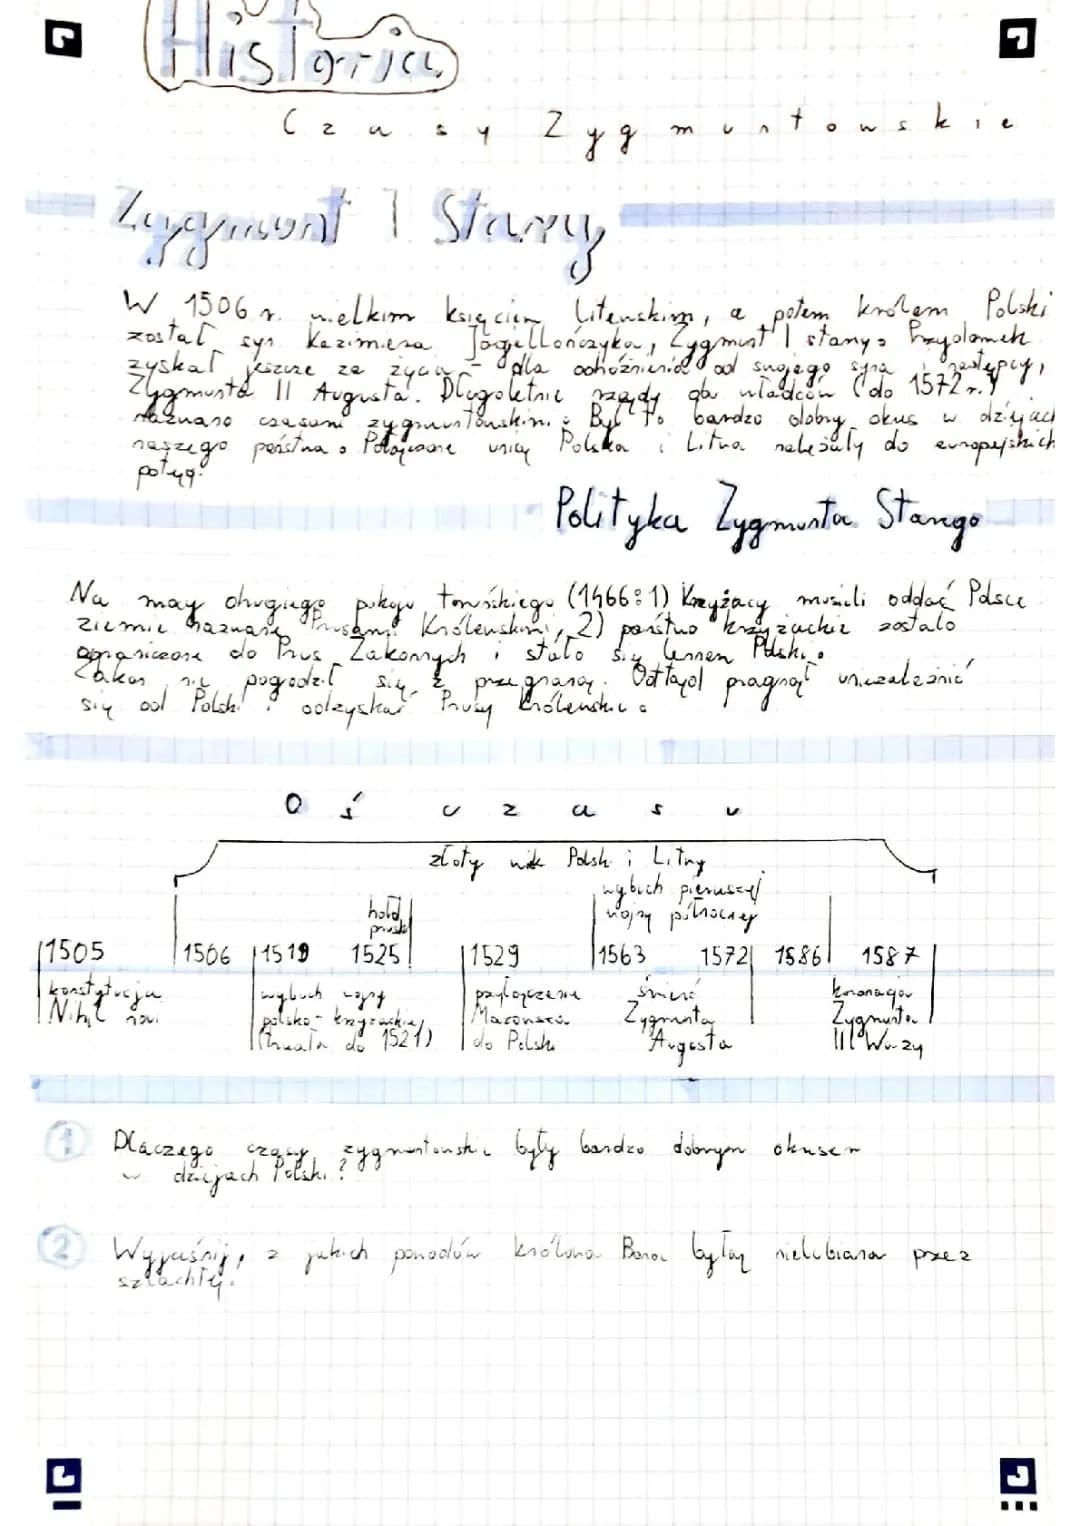 Historia
Czasy Zygmuntowskie
Zygmunt I Stary
W 1506 r. wielkim księciem litewskim, a potem królem Polski
został syn Kazimierza Jagiellończyka, Zygmunt I stary. Przydomek
zyskał jeszcze za życia - dla odróżnienia od swojego syna i następcy,
Zygmunta II Augusta. Długoletnie rządy obu władców (do 1572 r.)
nazwano czasami zygmuntowskimi. Był to bardzo dobry okres w dziejach
naszego państwa. Połączone unią Polska i Litwa należały do europejskich
potęg.
Polityka Zygmunta Starego
Na mocy drugiego pokoju toruńskiego (1466: 1) Krzyżacy musieli oddać Polsce
ziemie nazwane Prusami Królewskimi, 2) państwo krzyżackie zostało
ograniczone do Prus Zakonnych i stało się lennem Polski.
Zakon nie pogodził się z przegraną. Odtąd pragnął uniezależnić
się od Polski i odzyskać Prusy Królewskie.
Oś czasu
złoty wiek Polski i Litwy
wybuch pierwszej
hołd wojny północnej
pruski
1505 1506 1519 1525 1529 1563 1572 1586 1587
konstytucja wybuch wojny przyłączenie śmierć koronacja
Nihil novi polsko-krzyżackiej Mazowsza Zygmunta Zygmunta
(trwała do 1521) do Polski Augusta III Wazy
1 Dlaczego czasy zygmuntowskie były bardzo dobrym okresem
w dziejach Polski?
2 Wyjaśnij, z jakich powodów królowa Bona była nielubiana przez
szlachtę.